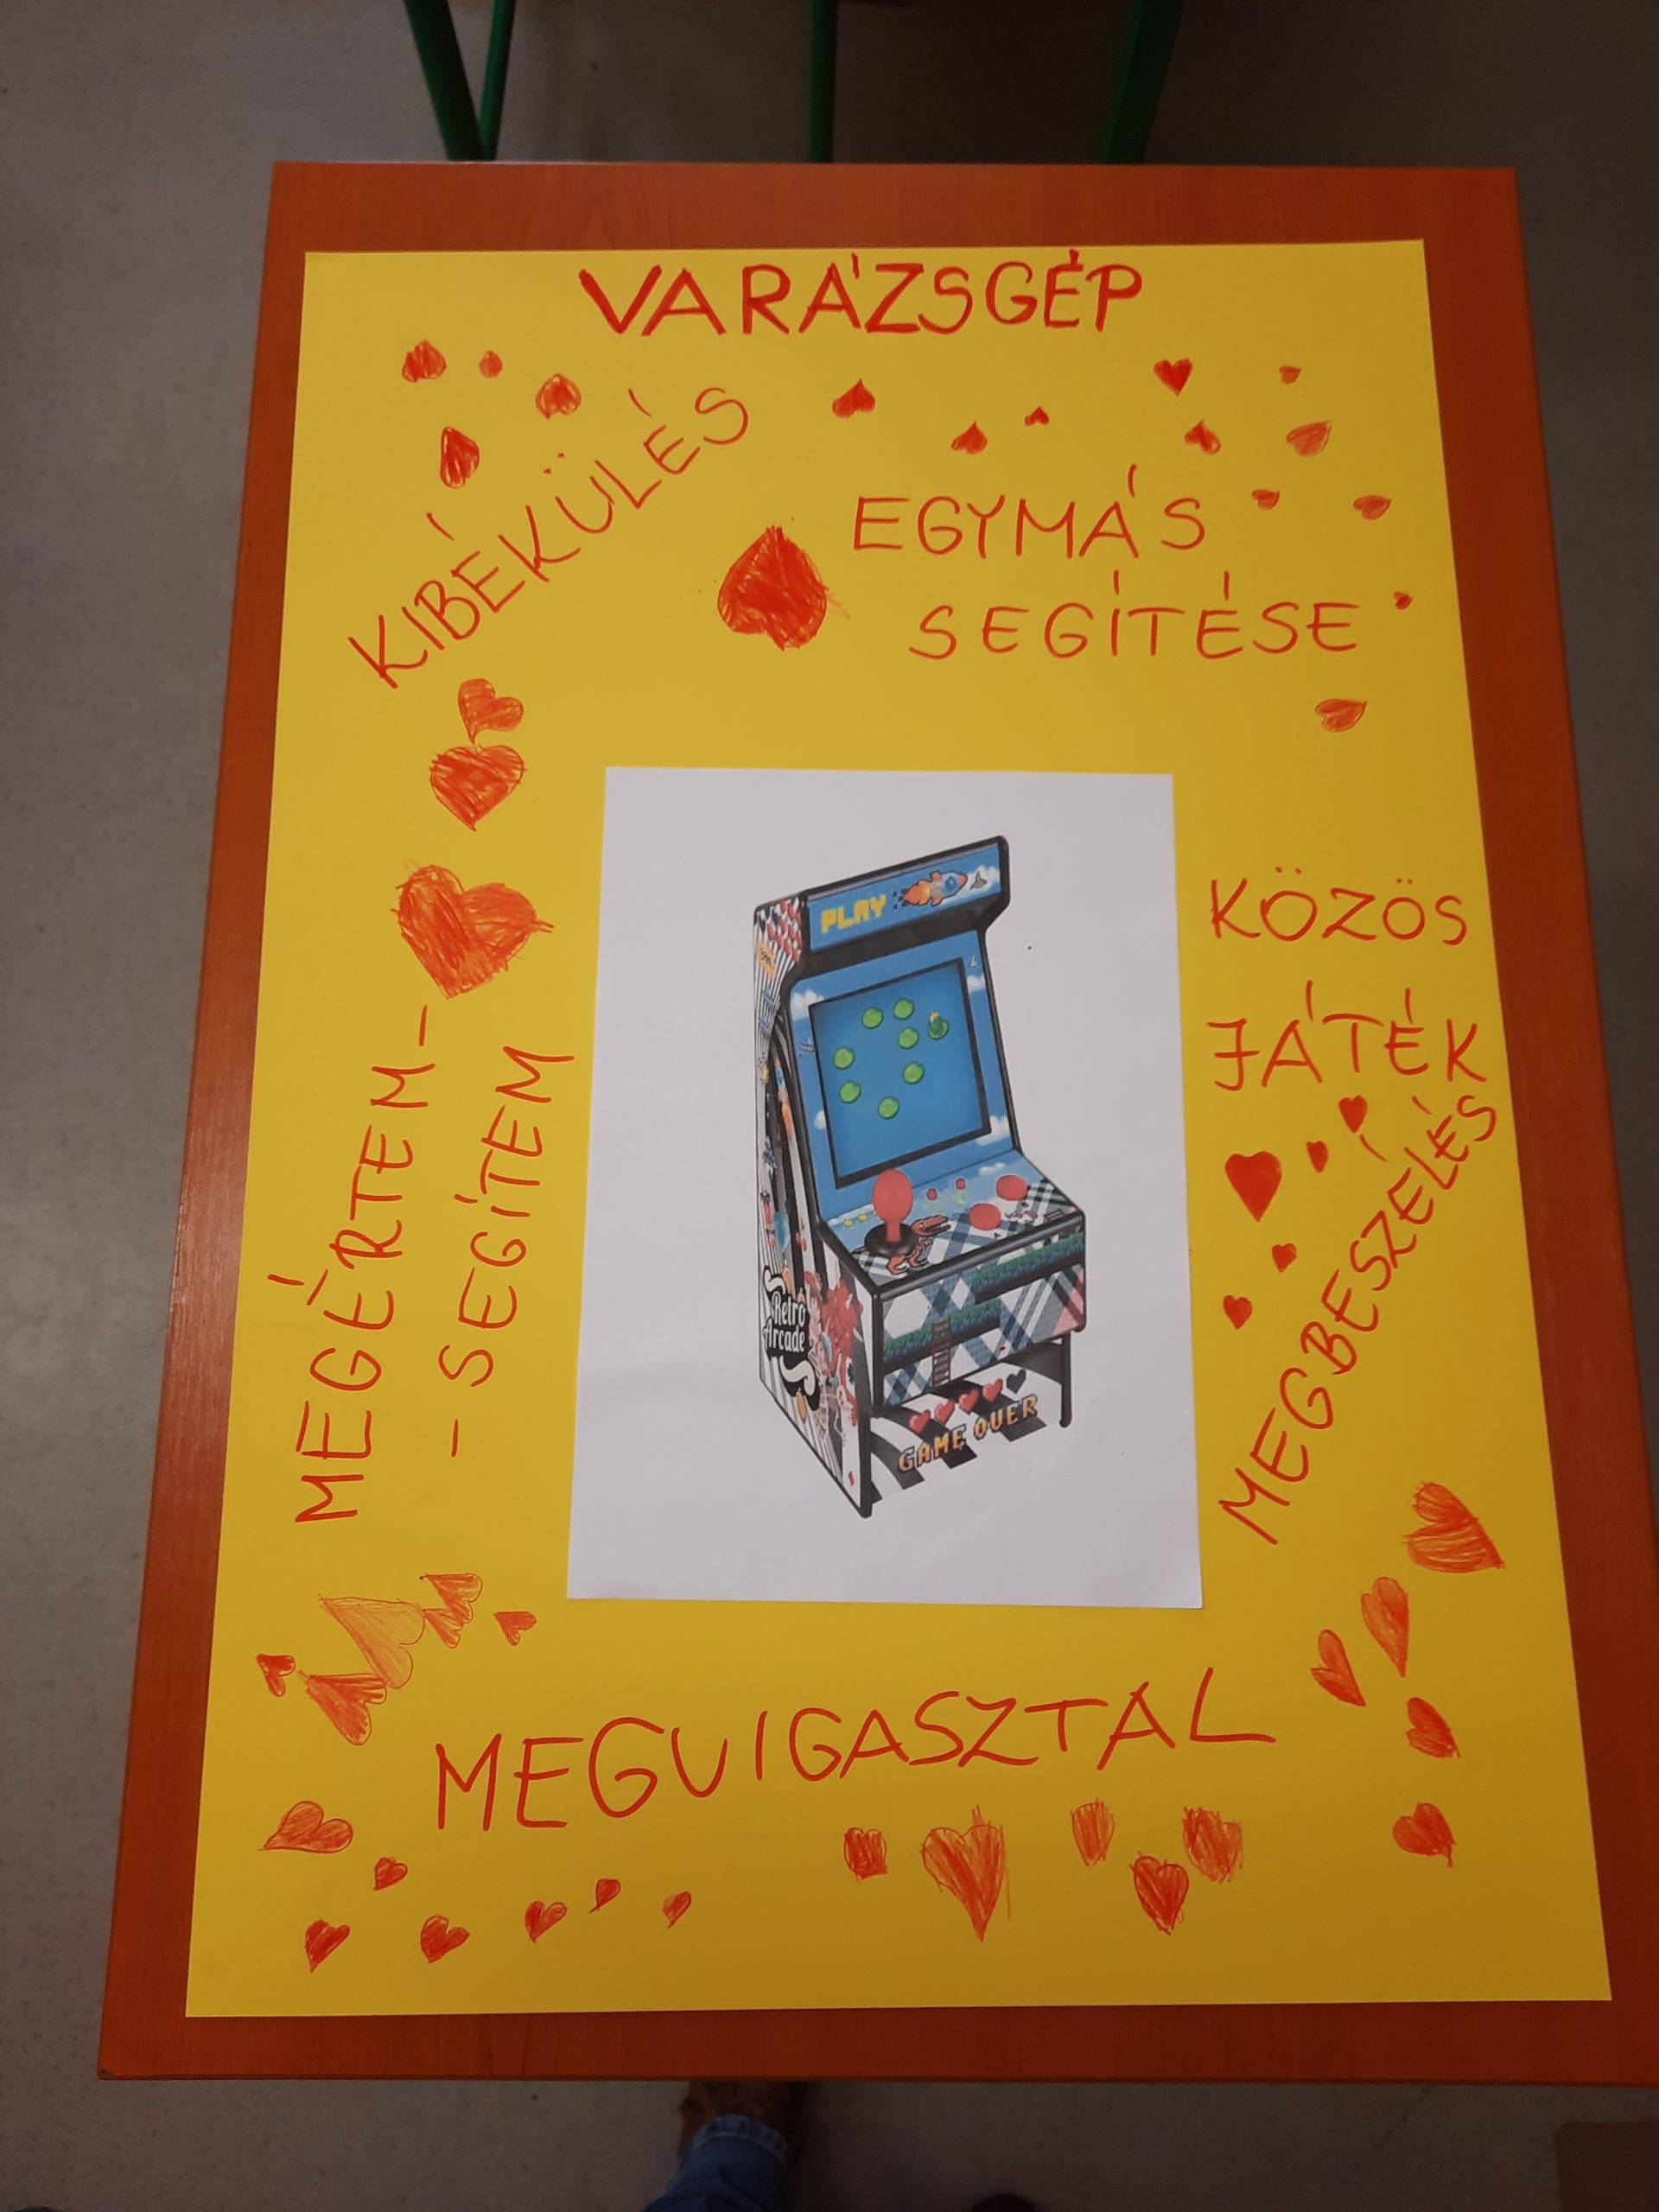 VARÁZSGÉP
KIBÉKÜLÉS
EGYMÁS
SEGÍTÉSE
MEGÉRTEM-
- SEGÍTEM
PLAY
Retro
Arcade
GAME OVER
KÖZÖS
JÁTÉK
MEGBESZÉLÉS
MEGVIGASZTAL